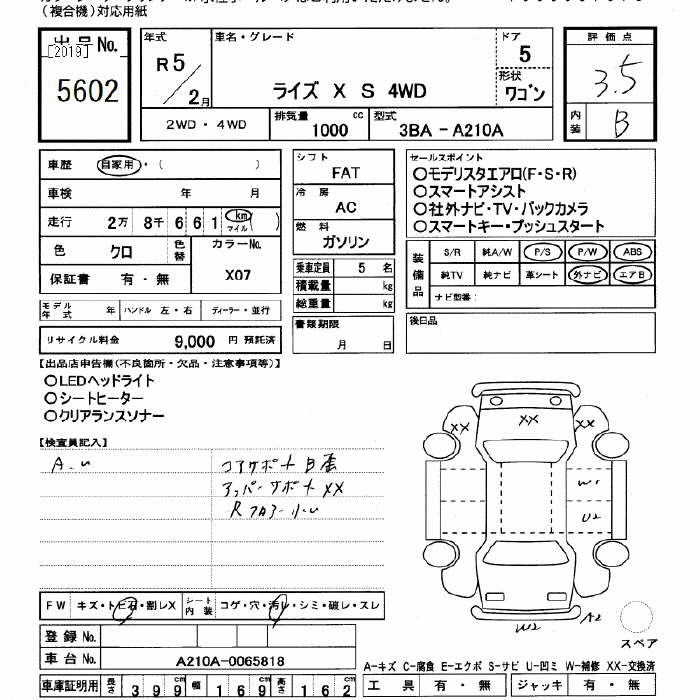 (複合機)対応用紙
出品No.
[2019]
5602
年式
R5/2月
車名・グレード
ライズ X S 4WD
ドア
5
形状
ワゴン
評価点
3.5
内装
B
2WD・4WD
排気量
1000
cc
型式
3BA-A210A
車歴
自家用・( )
車検 年 月
走行 2万 8千 6 6 1 km( )
マイル
色 クロ
色替
カラーNo.
X07
保証書 有・無
モデル年式 年
ハンドル 左・右
ディーラー・並行
リサイクル料金 9,000 円 預託済
シフト
FAT
冷房
AC
燃料
ガソリン
乗車定員 5 名
積載量 kg
総重量 kg
書類期限
月 日
セールスポイント
○モデリスタエアロ(F・S・R)
○スマートアシスト
○社外ナビ・TV・バックカメラ
○スマートキー・プッシュスタート
装備品
S/R 純A/W P/S P/W ABS
純TV 純ナビ 革シート 外ナビ エアB
ナビ型番:
後日品
【出品店申告欄(不良箇所・欠品・注意事項等)】
○LEDヘッドライト
○シートヒーター
○クリアランスソナー
【検査員記入】
A.u
コアサポート B歪
アッパーサポート XX
Rフロアー 小u
XX
XX
XX
W1
U2
W2
A2
スペア
FW キズ・トビ石・割レX
シート内装 コゲ・穴・汚レ・シミ・破レ・スレ
2
登録No.
車台No.
A210A-0065818
A-キズ C-腐食 E-エクボ S-サビ U-凹ミ W-補修 XX-交換済
車庫証明用 長さ 399cm 幅 169cm 高さ 162cm
工具 有・無 ジャッキ 有・無